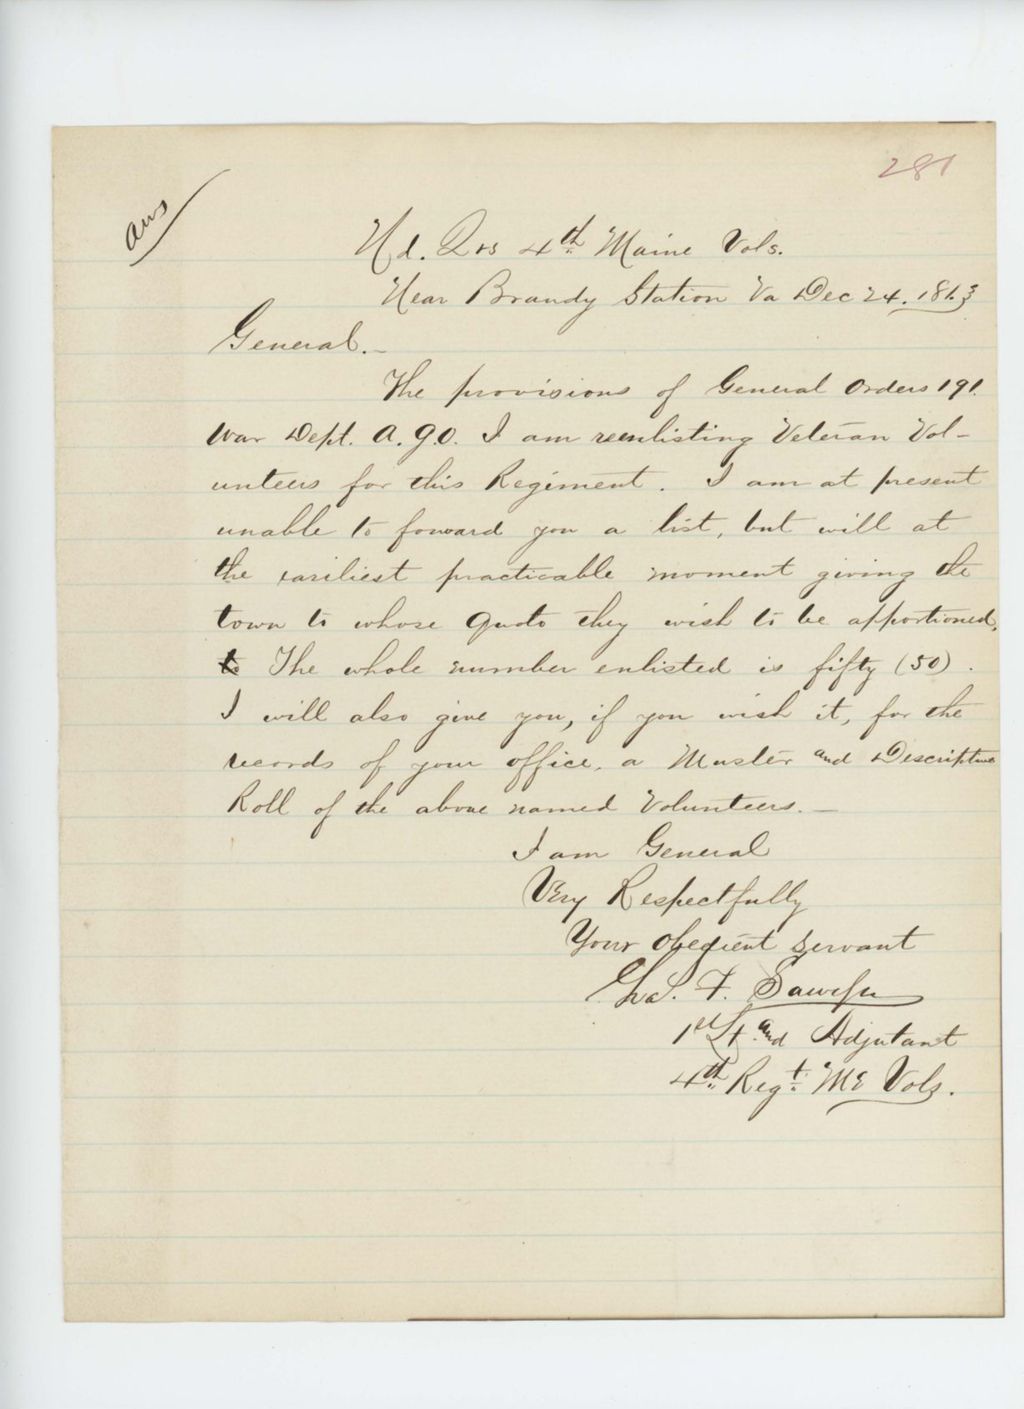 281
ans
Hd. Qrs 4th Maine Vols.
Near Brandy Station Va Dec 24. 1863
General.-
The provisions of General Orders 191.
War Dept. A.G.O. I am reenlisting Veteran Vol-
unteers for this Regiment. I am at present
unable to forward you a list, but will at
the eariliest practicable moment giving the
town to whose Quoto they wish to be apportioned,
to The whole number enlisted is fifty (50).
I will also give you, if you wish it, for the
records of your office, a Muster and Descriptive
Roll of the above named Volunteers.-
I am General
Very Respectfully
Your obedient servant
Chas. F. Sawyer
1st Lt. and Adjutant
4th Regt. Me Vols.